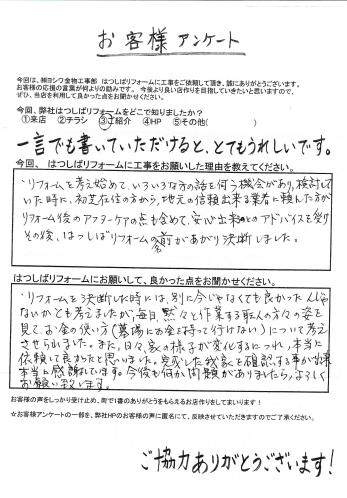 お客様アンケート
今回は、㈱ヨシワ金物工事部 はつしばリフォームに工事をご依頼して頂き、誠にありがとうございます。
お客様の応援の言葉が何よりの励みです。今後より良い店作りを目指していきたいと思いますので、
ぜひ、当店を利用して良かった点をお聞かせください。
今回、弊社はつしばリフォームをどこで知りましたか？
①来店 ②チラシ ③ご紹介 ④HP ⑤その他( )
一言でも書いていただけると、とてもうれしいです。
今回、 はつしばリフォームに工事をお願いした理由を教えてください。
・リフォームを考え始めて、いろいろな方の話を伺う機会があり、検討して
いた時に、初芝在住の方から、地元の信頼出来る業者に頼んだ方が
リフォーム後のアフターケアの点も含めて、安心出来るとのアドバイスを受け
その後、はつしばリフォームの名前があがり決断しました。
はつしばリフォームにお願いして、良かった点をお聞かせください。
・リフォームを決断した時には、別に今じゃなくても良かったんじゃ
ないかとも考えましたが、毎日、黙々と作業する職人の方々の姿を
見て、お金の使い方(墓場にお金は持って行けない)について考え
させられました。また、日々、家の様子が変化するにつれ、本当に
依頼して良かったと思いました。完成した我家を確認する事が出来
本当に感謝しています。今後も何か問題がありましたら、よろしく
お願い致します。
お客様の声をしっかり受け止め、町で1番のありがとうをもらえるお店作りをしてまいります！
☆お客様アンケートの一部を、弊社HPのお客様の声に匿名にて、反映させていただきますのでご了承ください。
ご協力ありがとうございます!